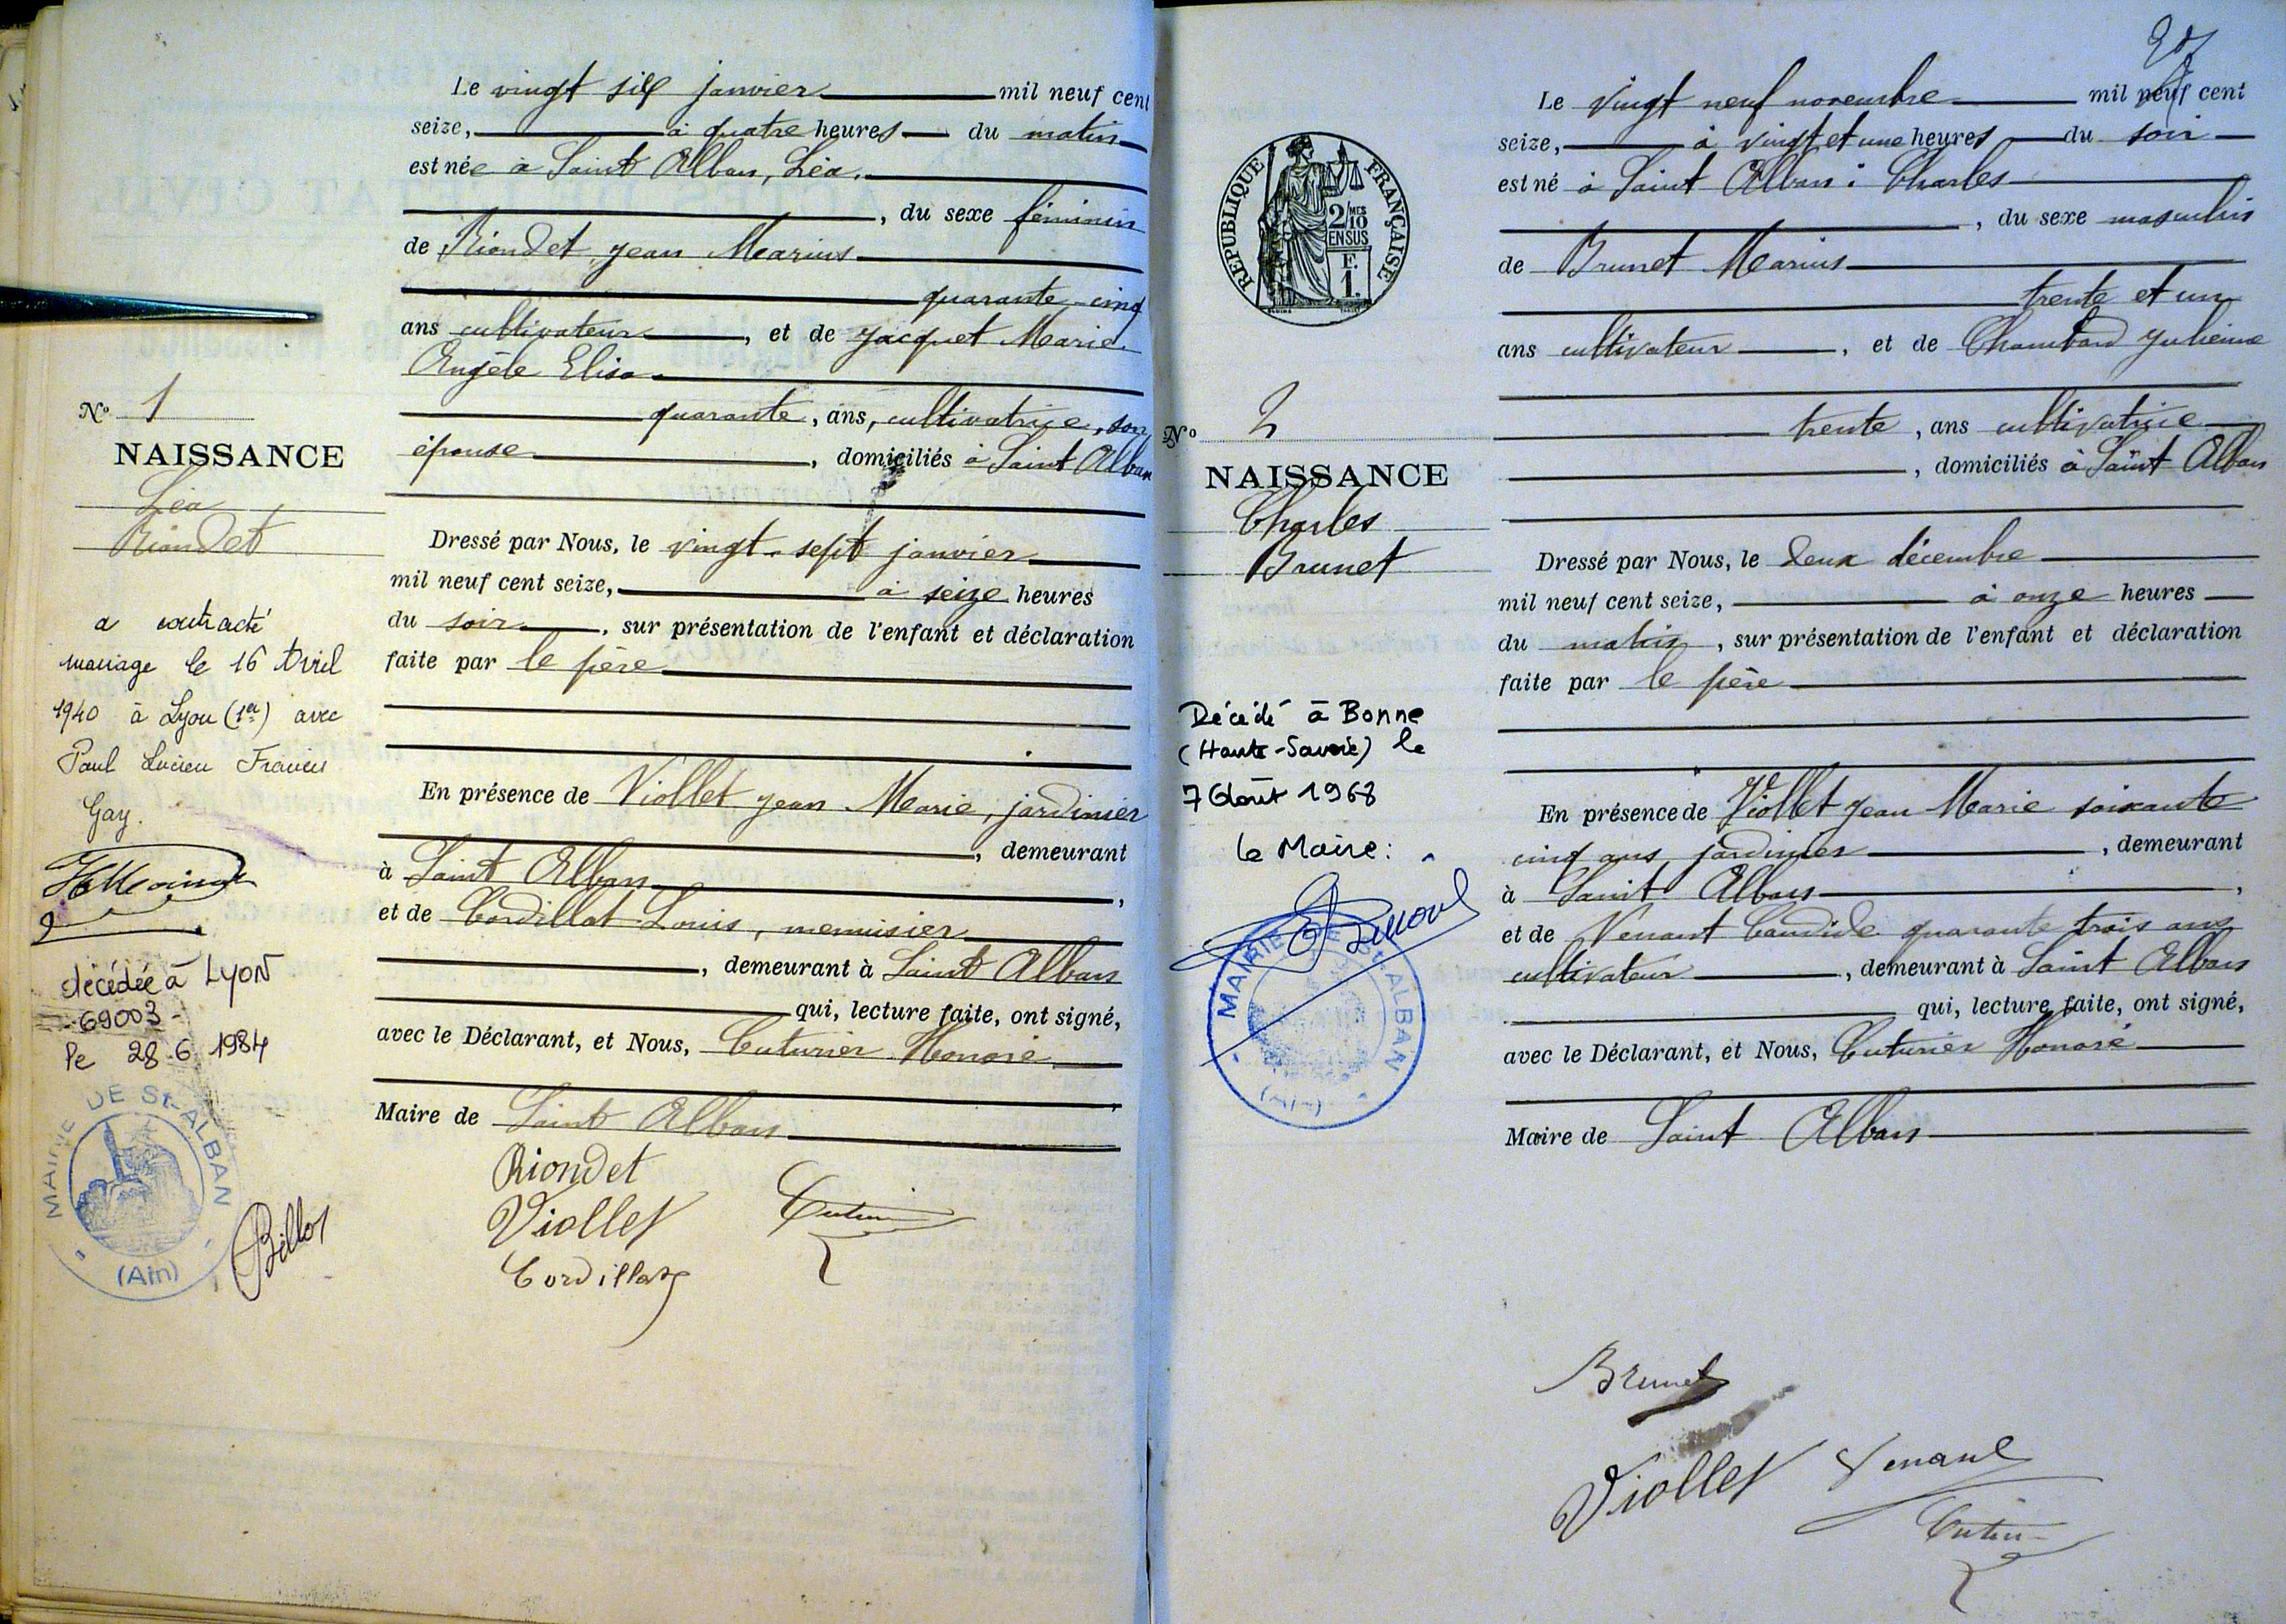 Le vingt six janvier mil neuf cent
seize, à quatre heures du matin
est née à Saint Alban, Léa.
, du sexe féminin
de Riondet Jean Marius
quarante-cinq
ans cultivateur, et de Jacquet Marie
Angèle Elisa
quarante, ans, cultivatrice, son
épouse, domiciliés à Saint Alban
Dressé par Nous, le vingt-sept janvier
mil neuf cent seize, à seize heures
du soir, sur présentation de l'enfant et déclaration
faite par le père
En présence de Viollet Jean Marie, jardinier
, demeurant
à Saint Alban,
et de Cordillat Louis, menuisier
, demeurant à Saint Alban
qui, lecture faite, ont signé,
avec le Déclarant, et Nous, Cuturier Honoré
Maire de Saint Alban
Riondet
Viollet
Cordillat
N° 1
NAISSANCE
Léa
Riondet
a contracté
mariage le 16 Avril
1940 à Lyon (1er) avec
Paul Lucien Francis
Gay.
décédée à LYON
-69003-
le 28-6 1984
MAIRIE DE ST-ALBAN
(Ain)
Billot
Le vingt neuf novembre mil neuf cent
seize, à vingt et une heures du soir
est né à Saint Alban : Charles
, du sexe masculin
de Brunet Marius
trente et un
ans cultivateur, et de Chambard Julienne
trente, ans cultivatrice
, domiciliés à Saint Alban
Dressé par Nous, le deux décembre
mil neuf cent seize, à onze heures
du matin, sur présentation de l'enfant et déclaration
faite par le père
En présence de Viollet Jean Marie soixante
cinq ans jardinier, demeurant
à Saint Alban,
et de Venant Candide quarante trois ans
cultivateur, demeurant à Saint Alban
qui, lecture faite, ont signé,
avec le Déclarant, et Nous, Cuturier Honoré
Maire de Saint Alban
Brunet
Viollet Venant
RÉPUBLIQUE FRANÇAISE
2/10 MES
EN SUS
F.
1.
N° 2
NAISSANCE
Charles
Brunet
Décédé à Bonne
(Haute-Savoie) le
7 Août 1968
Le Maire :
MAIRIE DE ST-ALBAN
(Ain)